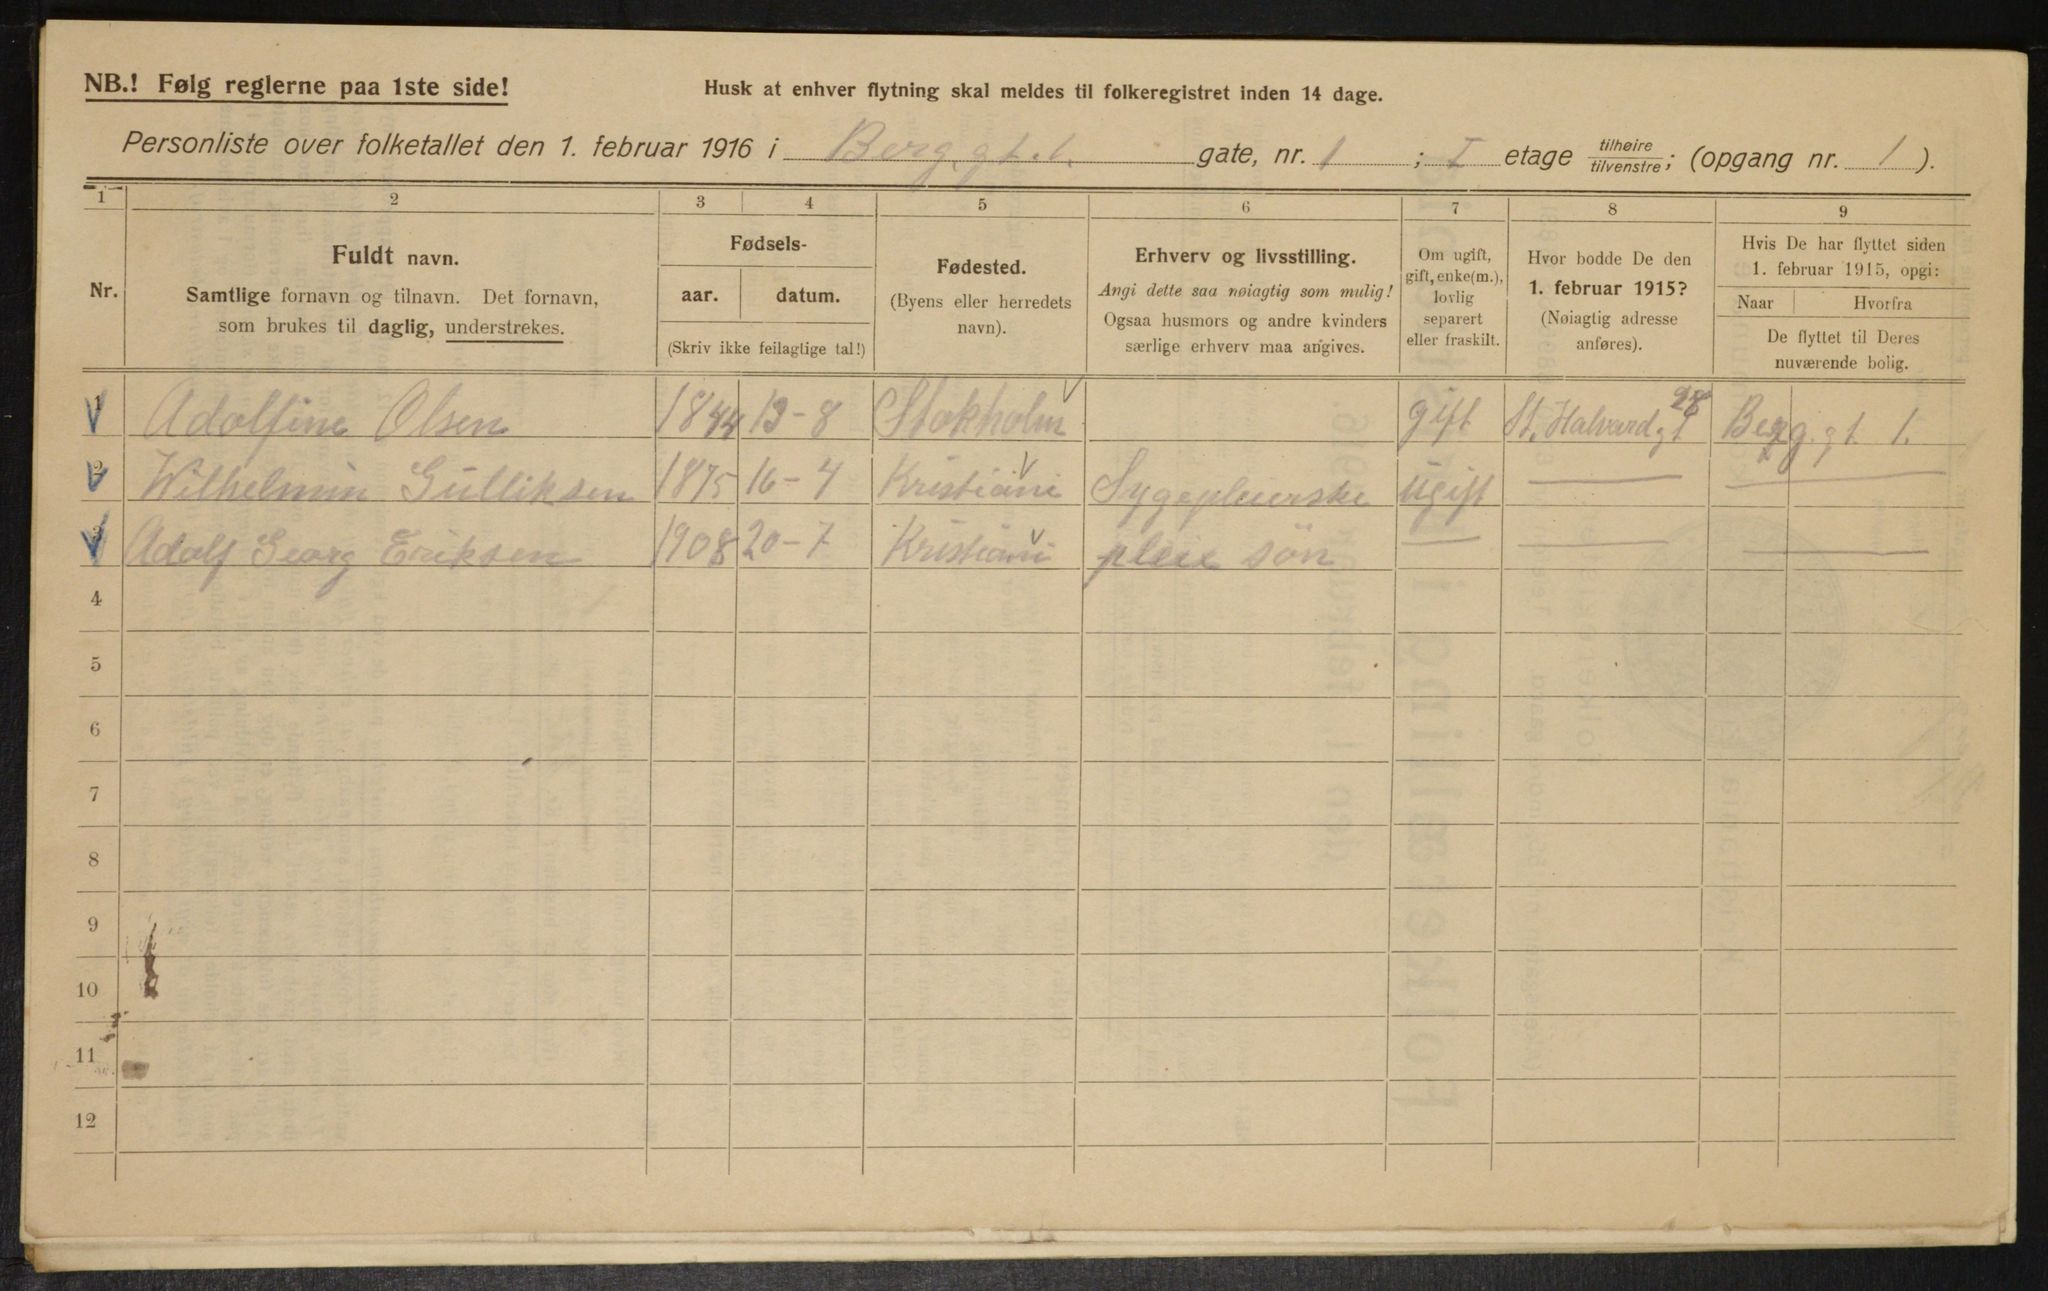 NB.! Følg reglerne paa 1ste side!
Husk at enhver flytning skal meldes til folkeregistret inden 14 dage.
Personliste over folketallet den 1. februar 1916 i Berg. gt. 1. gate, nr. 1 ; I etage tilhøire/tilvenstre; (opgang nr. 1 ).
1 2 3 4 5 6 7 8 9
Nr.
Fuldt navn.
Samtlige fornavn og tilnavn. Det fornavn,
som brukes til daglig, understrekes.
Fødsels-
aar. datum.
(Skriv ikke feilagtige tal!)
Fødested.
(Byens eller herredets
navn).
Erhverv og livsstilling.
Angi dette saa nøiagtig som mulig!
Ogsaa husmors og andre kvinders
særlige erhverv maa angives.
Om ugift,
gift, enke(m.),
lovlig
separert
eller fraskilt.
Hvor bodde De den
1. februar 1915?
(Nøiagtig adresse
anføres).
Hvis De har flyttet siden
1. februar 1915, opgi:
Naar Hvorfra
De flyttet til Deres
nuværende bolig.
1 Adolfine Olsen 1844 13-8 Stokholm gift St. Halvard gt 28 Berg. gt 1.
2 Wilhelmin Gulliksen 1875 16-4 Kristiani Sygepleierske ugift —
3 Adolf Georg Eriksen 1908 20-7 Kristiani pleie søn — — —
4
5
6
7
8
9
10
11
12